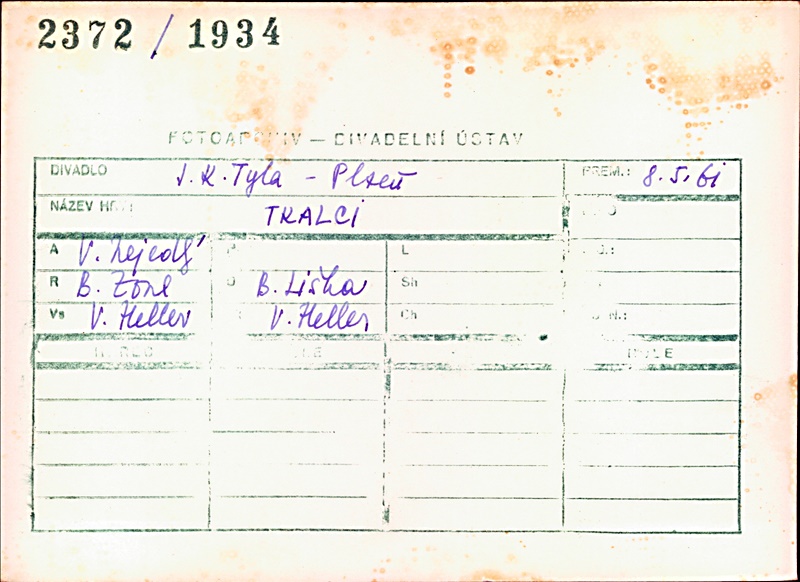 2372 / 1934
FOTOARCHIV — DIVADELNÍ ÚSTAV
DIVADLO J. K. Tyla - Plzeň PREM.: 8.5.61
NÁZEV HRY: TKALCI
A V. Nejedlý P L
R B. Zóne B. Liška Sh
Vs V. Heller V. Heller Ch